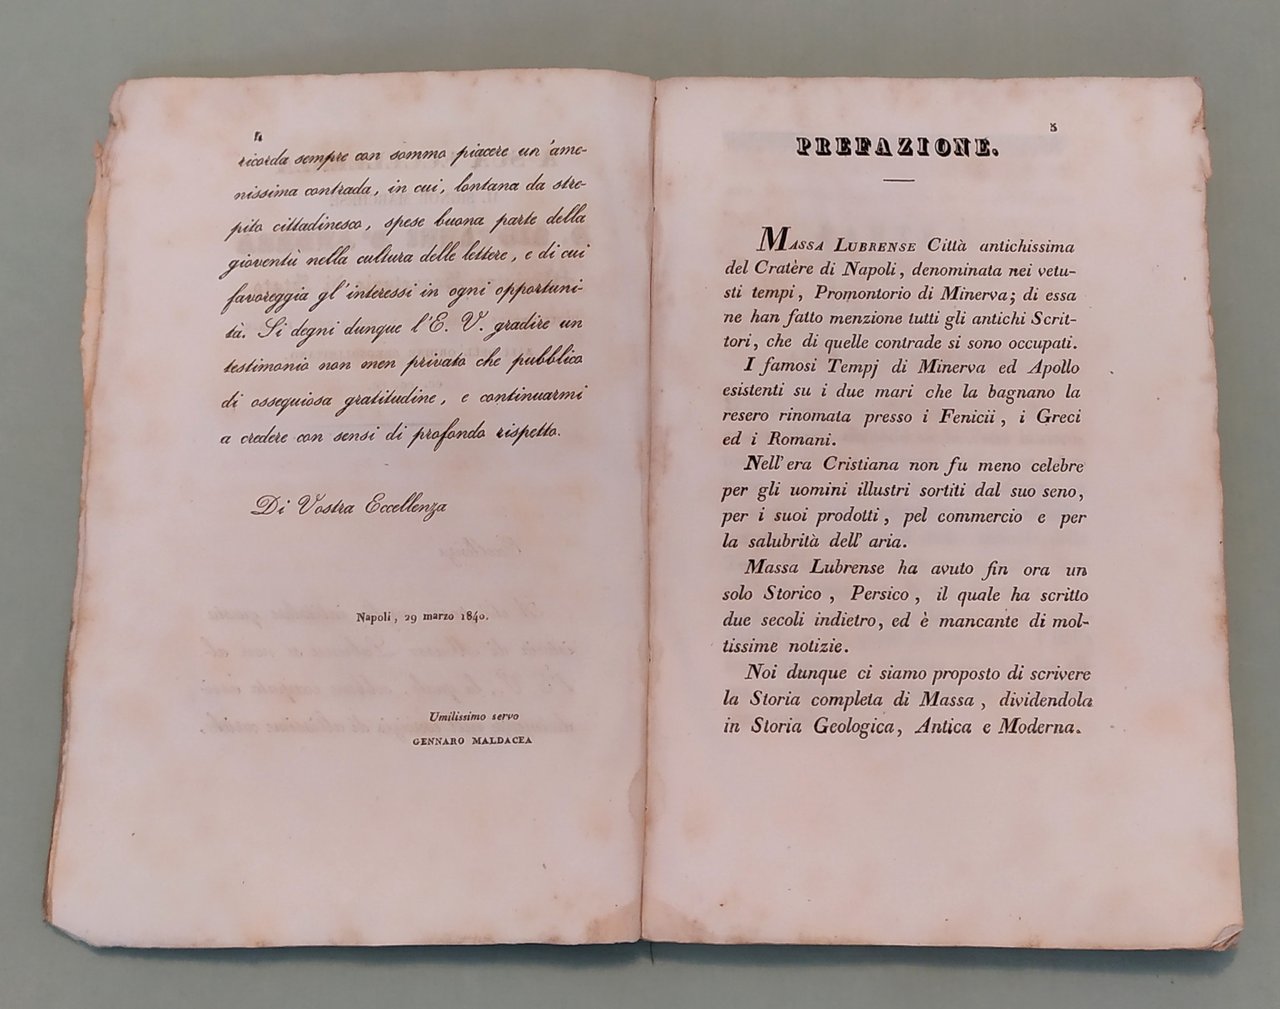 4
ricorda sempre con sommo piacere un'ame-
nissima contrada, in cui, lontana da stre-
pito cittadinesco, spese buona parte della
gioventù nella cultura delle lettere, e di cui
favoreggia gl'interessi in ogni opportuni-
tà. Si degni dunque l'E. V. gradire un
testimonio non men privato che pubblico
di ossequiosa gratitudine, e continuarmi
a credere con sensi di profondo rispetto.
Di Vostra Eccellenza
Napoli, 29 marzo 1840.
Umilissimo servo
GENNARO MALDACEA
5
PREFAZIONE.
MASSA LUBRENSE Città antichissima
del Cratère di Napoli, denominata nei vetu-
sti tempi, Promontorio di Minerva; di essa
ne han fatto menzione tutti gli antichi Scrit-
tori, che di quelle contrade si sono occupati.
I famosi Tempj di Minerva ed Apollo
esistenti su i due mari che la bagnano la
resero rinomata presso i Fenicii, i Greci
ed i Romani.
Nell'era Cristiana non fu meno celebre
per gli uomini illustri sortiti dal suo seno,
per i suoi prodotti, pel commercio e per
la salubrità dell'aria.
Massa Lubrense ha avuto fin ora un
solo Storico, Persico, il quale ha scritto
due secoli indietro, ed è mancante di mol-
tissime notizie.
Noi dunque ci siamo proposto di scrivere
la Storia completa di Massa, dividendola
in Storia Geologica, Antica e Moderna.